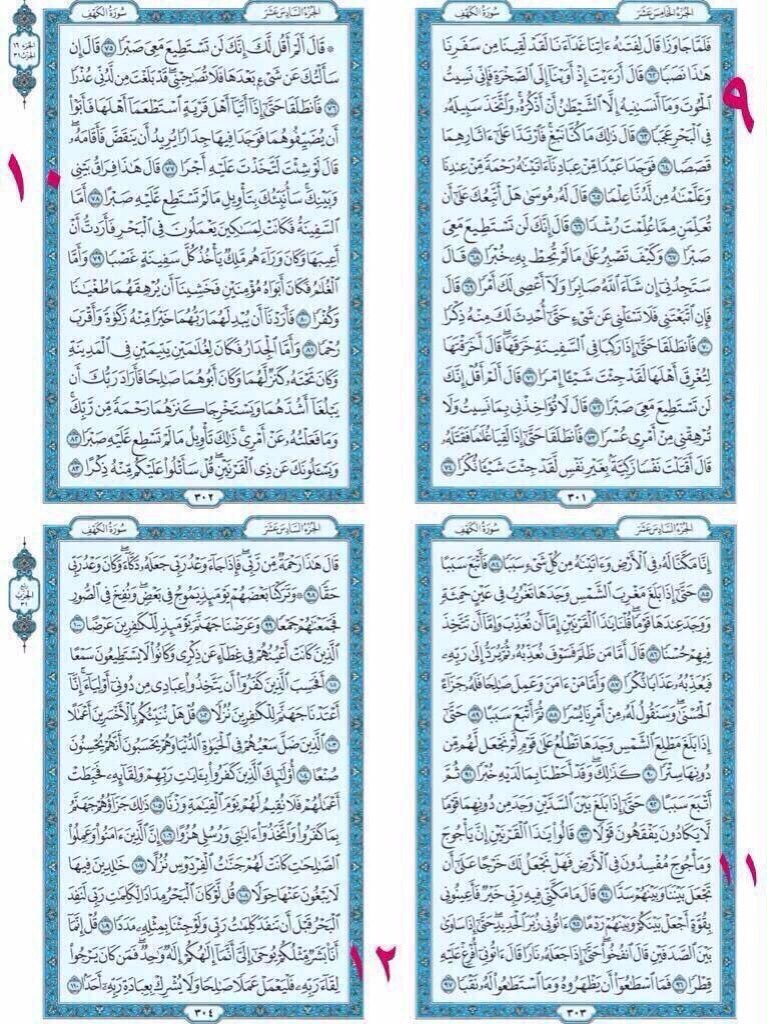 الجُزْءُ الخَامِسَ عَشَرَ
سُورَةُ الكَهْفِ
فَلَمَّا جَاوَزَا قَالَ لِفَتَىٰهُ ءَاتِنَا غَدَآءَنَا لَقَدْ لَقِينَا مِن سَفَرِنَا
هَٰذَا نَصَبًا ٦٢ قَالَ أَرَءَيْتَ إِذْ أَوَيْنَآ إِلَى ٱلصَّخْرَةِ فَإِنِّى نَسِيتُ
ٱلْحُوتَ وَمَآ أَنسَىٰنِيهُ إِلَّا ٱلشَّيْطَٰنُ أَنْ أَذْكُرَهُۥ وَٱتَّخَذَ سَبِيلَهُۥ
فِى ٱلْبَحْرِ عَجَبًا ٦٣ قَالَ ذَٰلِكَ مَا كُنَّا نَبْغِ فَٱرْتَدَّا عَلَىٰٓ ءَاثَارِهِمَا
قَصَصًا ٦٤ فَوَجَدَا عَبْدًا مِّنْ عِبَادِنَآ ءَاتَيْنَٰهُ رَحْمَةً مِّنْ عِندِنَا
وَعَلَّمْنَٰهُ مِن لَّدُنَّا عِلْمًا ٦٥ قَالَ لَهُۥ مُوسَىٰ هَلْ أَتَّبِعُكَ عَلَىٰٓ أَن
تُعَلِّمَنِ مِمَّا عُلِّمْتَ رُشْدًا ٦٦ قَالَ إِنَّكَ لَن تَسْتَطِيعَ مَعِىَ
صَبْرًا ٦٧ وَكَيْفَ تَصْبِرُ عَلَىٰ مَا لَمْ تُحِطْ بِهِۦ خُبْرًا ٦٨ قَالَ
سَتَجِدُنِىٓ إِن شَآءَ ٱللَّهُ صَابِرًا وَلَآ أَعْصِى لَكَ أَمْرًا ٦٩ قَالَ
فَإِنِ ٱتَّبَعْتَنِى فَلَا تَسْـَٔلْنِى عَن شَىْءٍ حَتَّىٰٓ أُحْدِثَ لَكَ مِنْهُ ذِكْرًا
٧٠ فَٱنطَلَقَا حَتَّىٰٓ إِذَا رَكِبَا فِى ٱلسَّفِينَةِ خَرَقَهَا ۖ قَالَ أَخَرَقْتَهَا
لِتُغْرِقَ أَهْلَهَا لَقَدْ جِئْتَ شَيْـًٔا إِمْرًا ٧١ قَالَ أَلَمْ أَقُلْ إِنَّكَ
لَن تَسْتَطِيعَ مَعِىَ صَبْرًا ٧٢ قَالَ لَا تُؤَاخِذْنِى بِمَا نَسِيتُ وَلَا
تُرْهِقْنِى مِنْ أَمْرِى عُسْرًا ٧٣ فَٱنطَلَقَا حَتَّىٰٓ إِذَا لَقِيَا غُلَٰمًا فَقَتَلَهُۥ
قَالَ أَقَتَلْتَ نَفْسًا زَكِيَّةًۢ بِغَيْرِ نَفْسٍ لَّقَدْ جِئْتَ شَيْـًٔا نُّكْرًا ٧٤
٣٠١
٩
الجُزْءُ السَّادِسَ عَشَرَ
سُورَةُ الكَهْفِ
الجُزْءُ ١٦
الحِزْبُ ٣١
۞ قَالَ أَلَمْ أَقُل لَّكَ إِنَّكَ لَن تَسْتَطِيعَ مَعِىَ صَبْرًا ٧٥ قَالَ إِن
سَأَلْتُكَ عَن شَىْءٍۭ بَعْدَهَا فَلَا تُصَٰحِبْنِى ۖ قَدْ بَلَغْتَ مِن لَّدُنِّى عُذْرًا
٧٦ فَٱنطَلَقَا حَتَّىٰٓ إِذَآ أَتَيَآ أَهْلَ قَرْيَةٍ ٱسْتَطْعَمَآ أَهْلَهَا فَأَبَوْا۟
أَن يُضَيِّفُوهُمَا فَوَجَدَا فِيهَا جِدَارًا يُرِيدُ أَن يَنقَضَّ فَأَقَامَهُۥ ۖ
قَالَ لَوْ شِئْتَ لَتَّخَذْتَ عَلَيْهِ أَجْرًا ٧٧ قَالَ هَٰذَا فِرَاقُ بَيْنِى
وَبَيْنِكَ ۚ سَأُنَبِّئُكَ بِتَأْوِيلِ مَا لَمْ تَسْتَطِع عَّلَيْهِ صَبْرًا ٧٨ أَمَّا
ٱلسَّفِينَةُ فَكَانَتْ لِمَسَٰكِينَ يَعْمَلُونَ فِى ٱلْبَحْرِ فَأَرَدتُّ أَنْ
أَعِيبَهَا وَكَانَ وَرَآءَهُم مَّلِكٌ يَأْخُذُ كُلَّ سَفِينَةٍ غَصْبًا ٧٩ وَأَمَّا
ٱلْغُلَٰمُ فَكَانَ أَبَوَاهُ مُؤْمِنَيْنِ فَخَشِينَآ أَن يُرْهِقَهُمَا طُغْيَٰنًا
وَكُفْرًا ٨٠ فَأَرَدْنَآ أَن يُبْدِلَهُمَا رَبُّهُمَا خَيْرًا مِّنْهُ زَكَوٰةً وَأَقْرَبَ
رُحْمًا ٨١ وَأَمَّا ٱلْجِدَارُ فَكَانَ لِغُلَٰمَيْنِ يَتِيمَيْنِ فِى ٱلْمَدِينَةِ
وَكَانَ تَحْتَهُۥ كَنزٌ لَّهُمَا وَكَانَ أَبُوهُمَا صَٰلِحًا فَأَرَادَ رَبُّكَ أَن
يَبْلُغَآ أَشُدَّهُمَا وَيَسْتَخْرِجَا كَنزَهُمَا رَحْمَةً مِّن رَّبِّكَ ۚ
وَمَا فَعَلْتُهُۥ عَنْ أَمْرِى ۚ ذَٰلِكَ تَأْوِيلُ مَا لَمْ تَسْطِع عَّلَيْهِ صَبْرًا ٨٢
وَيَسْـَٔلُونَكَ عَن ذِى ٱلْقَرْنَيْنِ ۖ قُلْ سَأَتْلُوا۟ عَلَيْكُم مِّنْهُ ذِكْرًا ٨٣
٣٠٢
١٠
الجُزْءُ السَّادِسَ عَشَرَ
سُورَةُ الكَهْفِ
إِنَّا مَكَّنَّا لَهُۥ فِى ٱلْأَرْضِ وَءَاتَيْنَٰهُ مِن كُلِّ شَىْءٍ سَبَبًا ٨٤ فَأَتْبَعَ سَبَبًا
٨٥ حَتَّىٰٓ إِذَا بَلَغَ مَغْرِبَ ٱلشَّمْسِ وَجَدَهَا تَغْرُبُ فِى عَيْنٍ حَمِئَةٍ
وَوَجَدَ عِندَهَا قَوْمًا ۗ قُلْنَا يَٰذَا ٱلْقَرْنَيْنِ إِمَّآ أَن تُعَذِّبَ وَإِمَّآ أَن تَتَّخِذَ
فِيهِمْ حُسْنًا ٨٦ قَالَ أَمَّا مَن ظَلَمَ فَسَوْفَ نُعَذِّبُهُۥ ثُمَّ يُرَدُّ إِلَىٰ رَبِّهِۦ
فَيُعَذِّبُهُۥ عَذَابًا نُّكْرًا ٨٧ وَأَمَّا مَنْ ءَامَنَ وَعَمِلَ صَٰلِحًا فَلَهُۥ جَزَآءً
ٱلْحُسْنَىٰ ۖ وَسَنَقُولُ لَهُۥ مِنْ أَمْرِنَا يُسْرًا ٨٨ ثُمَّ أَتْبَعَ سَبَبًا ٨٩ حَتَّىٰٓ
إِذَا بَلَغَ مَطْلِعَ ٱلشَّمْسِ وَجَدَهَا تَطْلُعُ عَلَىٰ قَوْمٍ لَّمْ نَجْعَل لَّهُم مِّن
دُونِهَا سِتْرًا ٩٠ كَذَٰلِكَ وَقَدْ أَحَطْنَا بِمَا لَدَيْهِ خُبْرًا ٩١ ثُمَّ
أَتْبَعَ سَبَبًا ٩٢ حَتَّىٰٓ إِذَا بَلَغَ بَيْنَ ٱلسَّدَّيْنِ وَجَدَ مِن دُونِهِمَا قَوْمًا
لَّا يَكَادُونَ يَفْقَهُونَ قَوْلًا ٩٣ قَالُوا۟ يَٰذَا ٱلْقَرْنَيْنِ إِنَّ يَأْجُوجَ
وَمَأْجُوجَ مُفْسِدُونَ فِى ٱلْأَرْضِ فَهَلْ نَجْعَلُ لَكَ خَرْجًا عَلَىٰٓ أَن
تَجْعَلَ بَيْنَنَا وَبَيْنَهُمْ سَدًّا ٩٤ قَالَ مَا مَكَّنِّى فِيهِ رَبِّى خَيْرٌ فَأَعِينُونِى
بِقُوَّةٍ أَجْعَلْ بَيْنَكُمْ وَبَيْنَهُمْ رَدْمًا ٩٥ ءَاتُونِى زُبَرَ ٱلْحَدِيدِ ۖ حَتَّىٰٓ إِذَا سَاوَىٰ
بَيْنَ ٱلصَّدَفَيْنِ قَالَ ٱنفُخُوا۟ ۖ حَتَّىٰٓ إِذَا جَعَلَهُۥ نَارًا قَالَ ءَاتُونِىٓ أُفْرِغْ عَلَيْهِ
قِطْرًا ٩٦ فَمَا ٱسْطَٰعُوٓا۟ أَن يَظْهَرُوهُ وَمَا ٱسْتَطَٰعُوا۟ لَهُۥ نَقْبًا ٩٧
٣٠٣
١١
الجُزْءُ السَّادِسَ عَشَرَ
سُورَةُ الكَهْفِ
رُبع
الحِزْبُ
٣١
قَالَ هَٰذَا رَحْمَةٌ مِّن رَّبِّى ۖ فَإِذَا جَآءَ وَعْدُ رَبِّى جَعَلَهُۥ دَكَّآءَ ۖ وَكَانَ وَعْدُ رَبِّى
حَقًّا ٩٨ ۞ وَتَرَكْنَا بَعْضَهُمْ يَوْمَئِذٍ يَمُوجُ فِى بَعْضٍ ۖ وَنُفِخَ فِى ٱلصُّورِ
فَجَمَعْنَٰهُمْ جَمْعًا ٩٩ وَعَرَضْنَا جَهَنَّمَ يَوْمَئِذٍ لِّلْكَٰفِرِينَ عَرْضًا ١٠٠
ٱلَّذِينَ كَانَتْ أَعْيُنُهُمْ فِى غِطَآءٍ عَن ذِكْرِى وَكَانُوا۟ لَا يَسْتَطِيعُونَ سَمْعًا
١٠١ أَفَحَسِبَ ٱلَّذِينَ كَفَرُوٓا۟ أَن يَتَّخِذُوا۟ عِبَادِى مِن دُونِىٓ أَوْلِيَآءَ ۚ إِنَّآ
أَعْتَدْنَا جَهَنَّمَ لِلْكَٰفِرِينَ نُزُلًا ١٠٢ قُلْ هَلْ نُنَبِّئُكُم بِٱلْأَخْسَرِينَ أَعْمَٰلًا
١٠٣ ٱلَّذِينَ ضَلَّ سَعْيُهُمْ فِى ٱلْحَيَوٰةِ ٱلدُّنْيَا وَهُمْ يَحْسَبُونَ أَنَّهُمْ يُحْسِنُونَ
صُنْعًا ١٠٤ أُو۟لَٰٓئِكَ ٱلَّذِينَ كَفَرُوا۟ بِـَٔايَٰتِ رَبِّهِمْ وَلِقَآئِهِۦ فَحَبِطَتْ
أَعْمَٰلُهُمْ فَلَا نُقِيمُ لَهُمْ يَوْمَ ٱلْقِيَٰمَةِ وَزْنًا ١٠٥ ذَٰلِكَ جَزَآؤُهُمْ جَهَنَّمُ
بِمَا كَفَرُوا۟ وَٱتَّخَذُوٓا۟ ءَايَٰتِى وَرُسُلِى هُزُوًا ١٠٦ إِنَّ ٱلَّذِينَ ءَامَنُوا۟ وَعَمِلُوا۟
ٱلصَّٰلِحَٰتِ كَانَتْ لَهُمْ جَنَّٰتُ ٱلْفِرْدَوْسِ نُزُلًا ١٠٧ خَٰلِدِينَ فِيهَا
لَا يَبْغُونَ عَنْهَا حِوَلًا ١٠٨ قُل لَّوْ كَانَ ٱلْبَحْرُ مِدَادًا لِّكَلِمَٰتِ رَبِّى لَنَفِدَ
ٱلْبَحْرُ قَبْلَ أَن تَنفَدَ كَلِمَٰتُ رَبِّى وَلَوْ جِئْنَا بِمِثْلِهِۦ مَدَدًا ١٠٩ قُلْ إِنَّمَآ
أَنَا۠ بَشَرٌ مِّثْلُكُمْ يُوحَىٰٓ إِلَىَّ أَنَّمَآ إِلَٰهُكُمْ إِلَٰهٌ وَٰحِدٌ ۖ فَمَن كَانَ يَرْجُوا۟
لِقَآءَ رَبِّهِۦ فَلْيَعْمَلْ عَمَلًا صَٰلِحًا وَلَا يُشْرِكْ بِعِبَادَةِ رَبِّهِۦٓ أَحَدًۢا ١١٠
٣٠٤
١٢